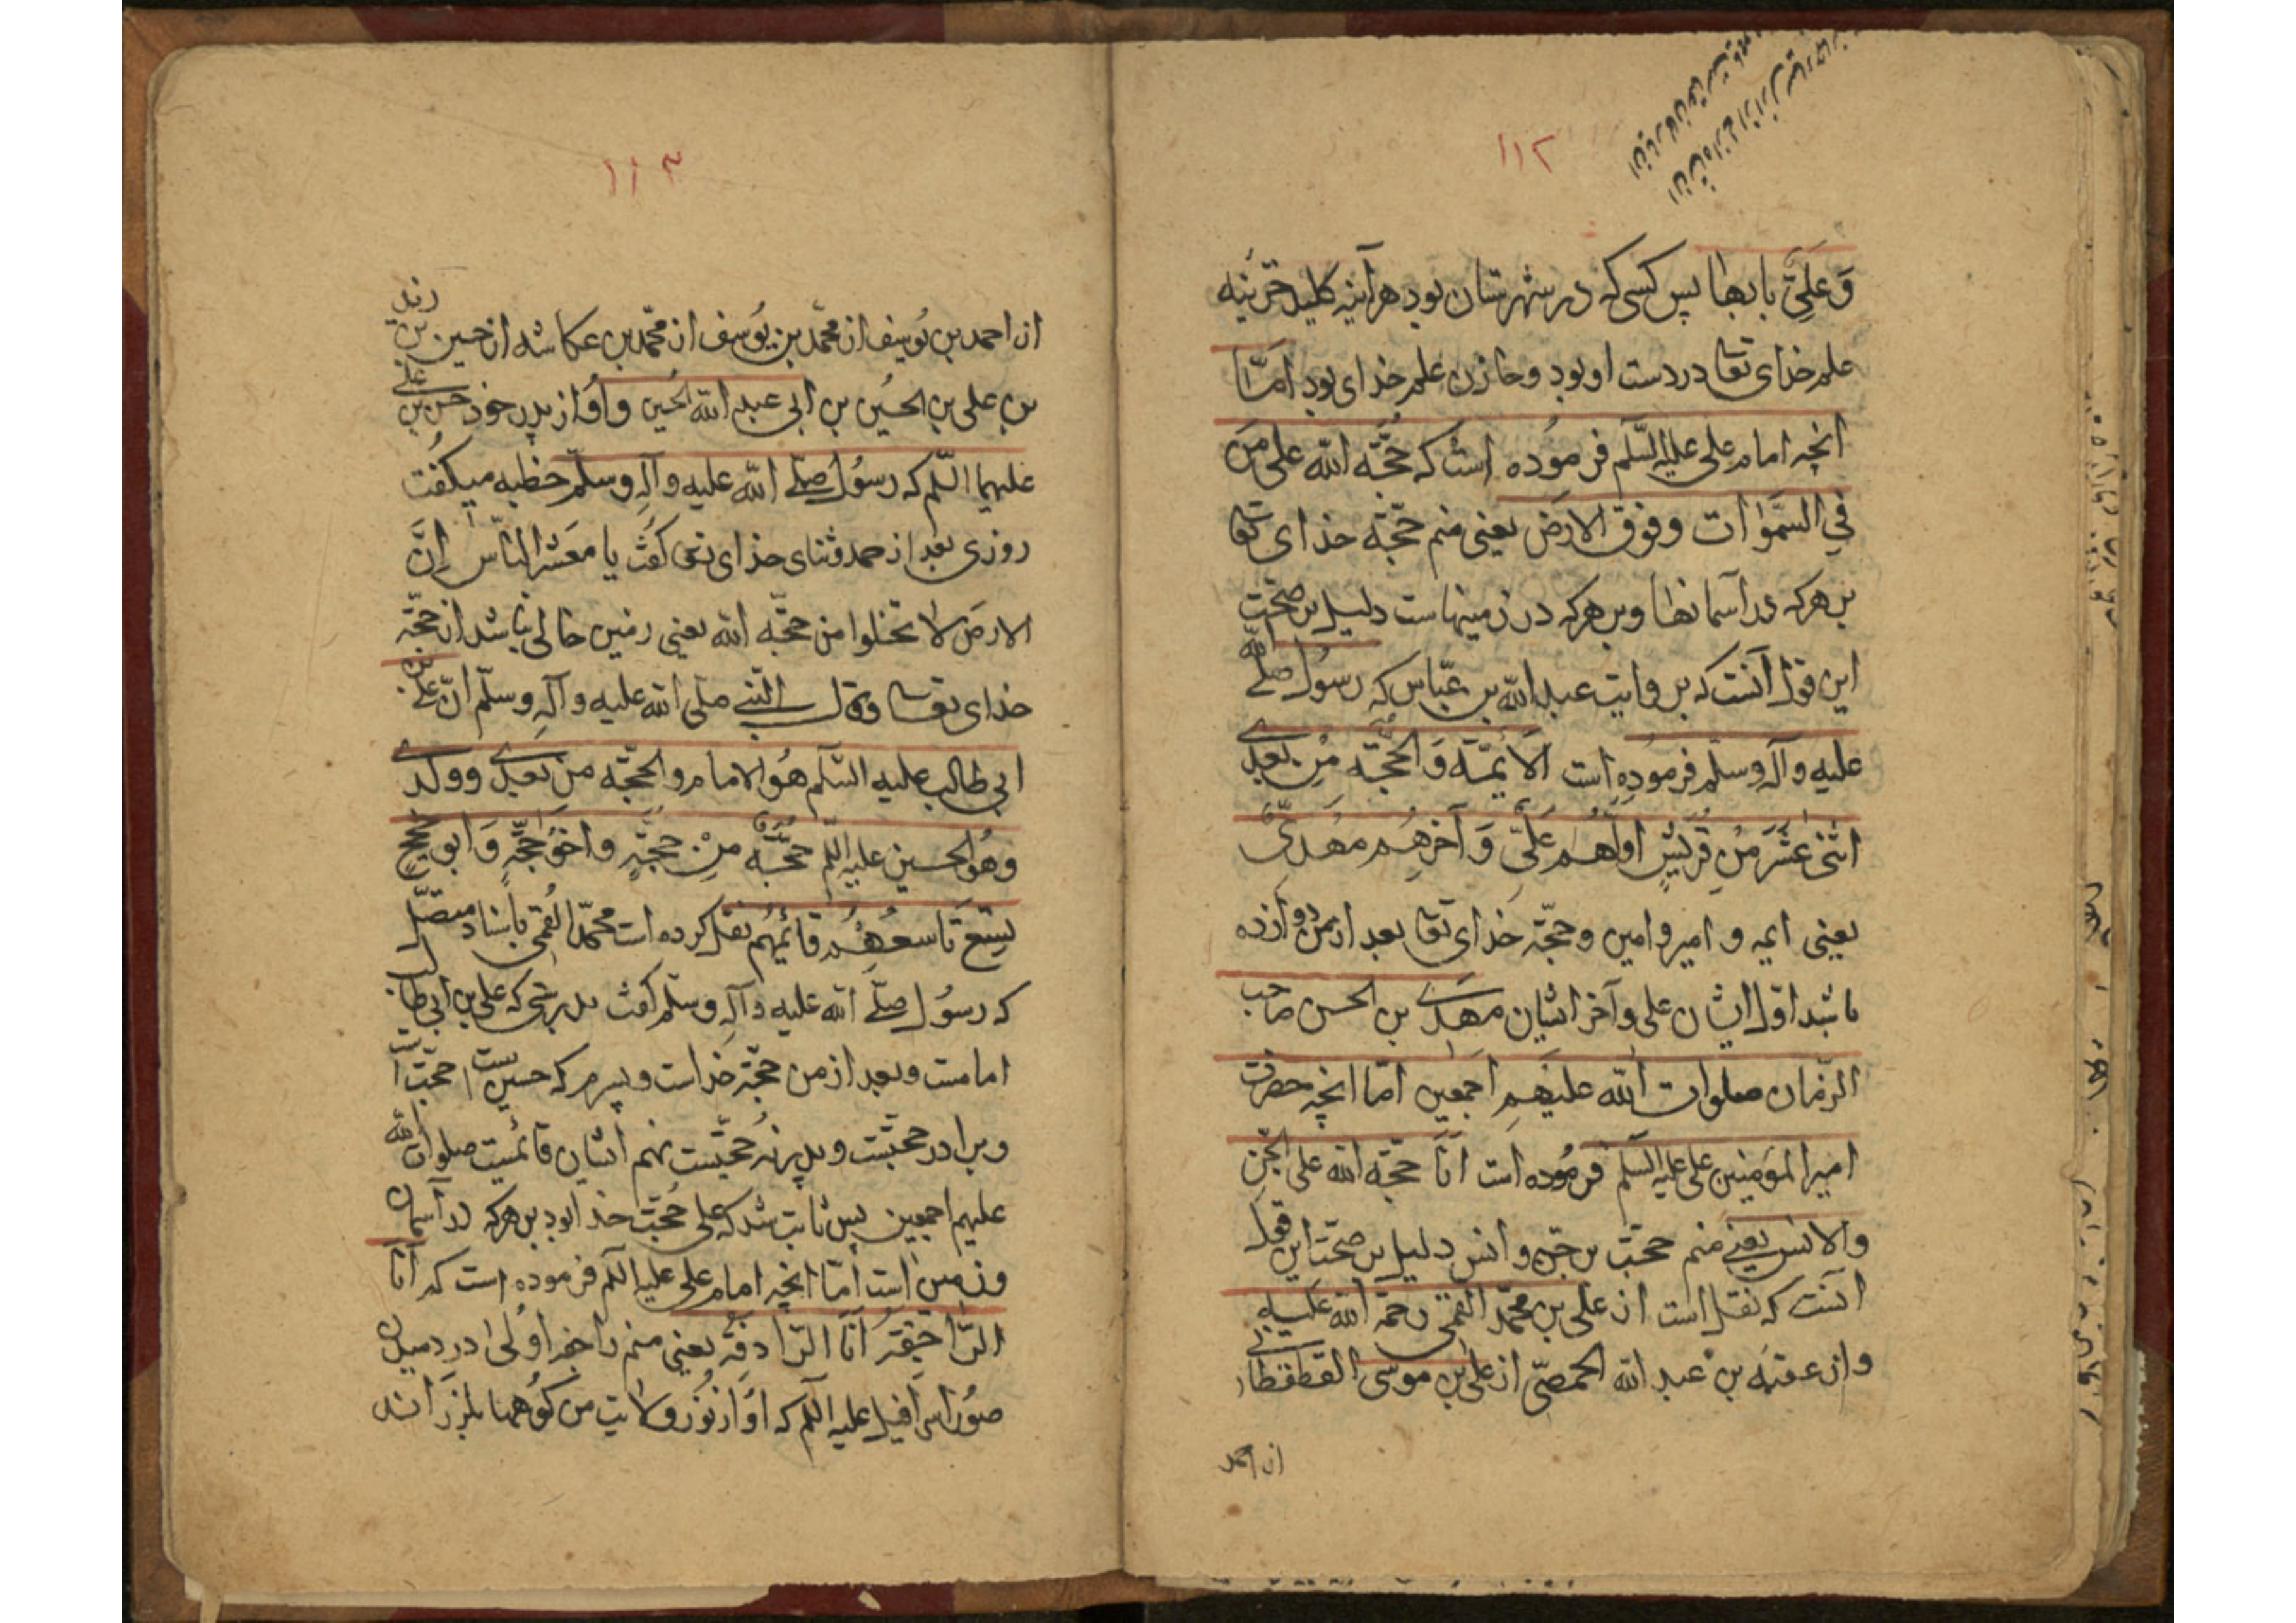 ۱۱۲
وَ عَلِیٌّ بابها پس کسی که در شهرستان بود هرآینه کلید خزینه
علم خدای تعا در دست او بود و خازن علم خدای بود امّا
انچه امام علی علیه السّلم فرموده است که حُجّة الله علی مَن
فِی السَّمٰوات وفوق الارَض یعنی منم حجّة خدای تعا
بر هرکه در آسمانها وبر هرکه در زمینهاست دلیل بر صحّت
این قول آنست که بروایت عبد الله بن عبّاس که رسول صلّی الله
علیه وآله وسلّم فرموده است الاَئمّة وَ الحُجّة مِن بَعدی
اثنی عَشَرَ مِن قُرَیشٍ اوّلهُم عَلِیٌّ وَ آخرِهُم مَهدیٌّ
یعنی ایمه و امیر وامین وحجّة خدای تعا بعد از من دوازده
باشد اوّل ایشان علی وآخر ایشان مهدی بن الحسن صاحب
الزّمان صلوات الله علیهم اجمعین امّا انچه حضرت
امیر المؤمنین علی علیه السلم فرموده است اَنَا حجّة الله علی الجّن
والانس یعنی منم حجّت بر جنّ و انس دلیل بر صحّت این قول
آنست که نقل است از علی بن محمّد القمّی رحمة الله علیه
واز عقبه بن عبد الله الحمصّی از علی بن موسی
از احمد
۱۱۳
از احمد بن یُوسف از محمّد بن یوُسف از محمّد بن عکاشه از حسین بن
بن علی بن الحسین بن ابی عبد الله الحُسین واوُ از پدر خود حسن بن علی
علیهما السّلم که رسُول صلّی الله علیه وآله وسلّم خطبه میکُفت
روزی بعد از حمد وثنای خدای تعی کفت یا معَشر النّاس اِنَّ
الارض لا تخلوا من حجّة الله یعنی زمین خالی نباشد از حجّة
خدای تعا وقال النّبی صلی الله علیه وآله وسلّم انّ علی بن
ابی طالب علیه السّلم هُوَ الامام والحجّة من بَعدی وولدی
وهُوَ الحسین علیه السلم حجّةٌ مِنْ حجّةٍ واخوُ حُجّةٍ وَ ابو حججٍ
تِسَع تاسعُهُم قائمهُم نقل کرده است محمّد القُمی باسناد متصّل
که رسُول صلّی الله علیه وآله وسلّم کفت بدرستی که علی بن ابی طالب
امامست وبعد از من حجّة خداست وپسرم که حسین است حجّت است
وبرادر حجّتست وپدر نُه حجّتست نهم ایشان قائمست صلوات الله
علیهم اجمعین پس ثابت شد که علی حُجّت خدا بود بر هرکه در آسمان
وزمین است امّا انچه امام علی علیه السلم فرموده است که اَنَا
الرّاجفة اَنَا الرّادفة یعنی منم راجفه اوُلیٰ در دمیدن
صوُر اسرافیل علیه السلم که اوَ از نوُر ولایت من کوُهها بلرزانند